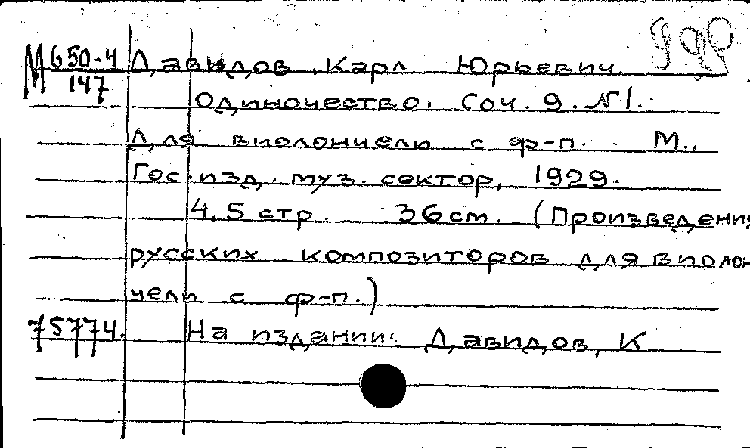 М 650-4 Давидов Карл Юрьевич
147
Одиночество. Соч. 9. №1.
Для виолончели с ф-п. М.,
Гос. изд. муз. сектор, 1929.
4,5 стр. 36 см. (Произведения
русских композиторов для виолон
чели с ф-п.)
75774. На издании: Давидов, К